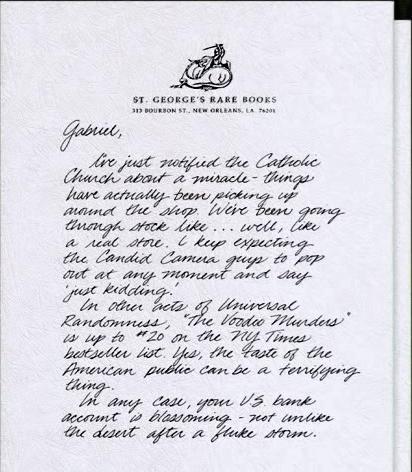 ST. GEORGE'S RARE BOOKS
313 BOURBON ST., NEW ORLEANS, LA. 76201
Gabriel,
I've just notified the Catholic
Church about a miracle - things
have actually been picking up
around the shop. We've been going
through stock like ... well, like
a real store. I keep expecting
the Candid Camera guys to pop
out at any moment and say
'just kidding.'
In other acts of Universal
Randomness, "The Voodoo Murders"
is up to #20 on the NY Times
bestseller list. Yes, the taste of the
American public can be a terrifying
thing.
In any case, your U.S. bank
account is blossoming - not unlike
the desert after a fluke storm.